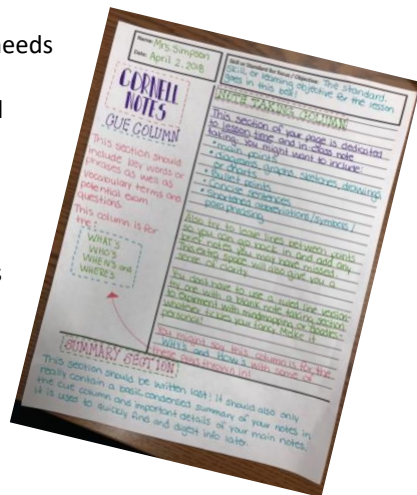 needs
Name: Mrs. Simpson
Date: April 2, 2018
Skill or Standard for Focus / Objective: The standard,
skill, or learning objective for the lesson
goes in this box!
CORNELL
NOTES
CUE COLUMN
This section should
include key words or
phrases as well as
vocabulary terms and
potential exam
questions.
This column is for
the:
WHAT'S
WHO'S
WHEN'S and
WHERE'S
NOTE TAKING COLUMN
This section of your page is dedicated
to lesson time and in-class note
taking. You might want to include:
• main points
• diagrams, graphs, sketches, drawings
or charts
• Bullet points
• Concise sentences
• Shortened abbreviations/symbols/
paraphrasing
Also try to leave lines between points
so you can go back in and add any
extra notes you may have missed.
extra space will also give you a
sense of clarity.
You don't have to use a ruled line
try one with a blank note taking section
to experiment with mindmapping or doodles-
whatever tickles your fancy. Make it
personal!
You might say this column is for the
WHY's and HOW's with some of
these guys thrown in!
SUMMARY SECTION
This section should be written last! It should also only
really contain a basic condensed summary of your notes in
the cue column and important details of your main notes.
It is used to quickly find and digest info later.